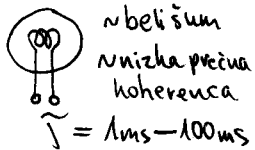 ~beli šum
~nizka prečna
koherenca
τ̃ = 1ms-100ms